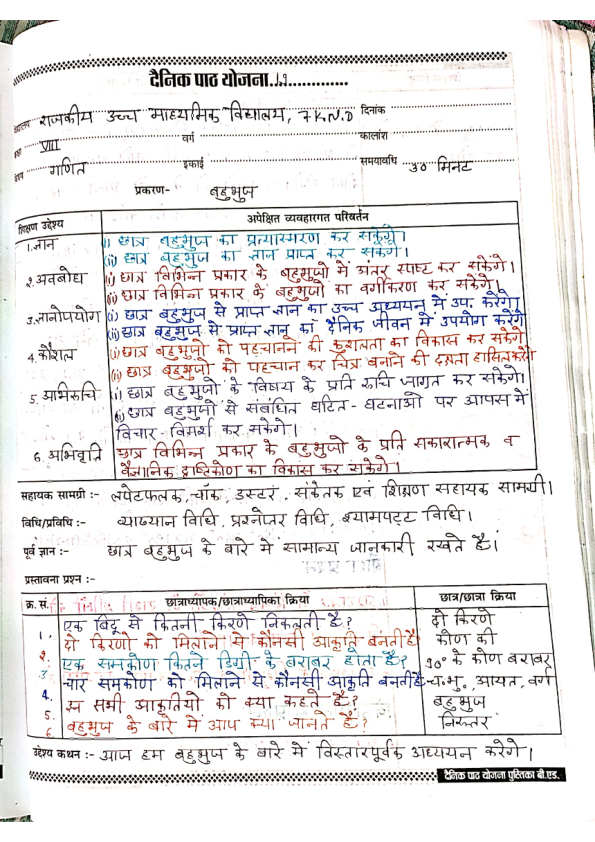 दैनिक पाठ योजना.19.............
राजकीय उच्च माध्यमिक विद्यालय, 7 K.N.D दिनांक
VIII वर्ग कालांश
गणित इकाई समयावधि 30 मिनट
प्रकरण- बहुभुज
शिक्षण उद्देश्य अपेक्षित व्यवहारगत परिवर्तन
1. ज्ञान (i) छात्र बहुभुज का प्रत्यास्मरण कर सकेंगे।
(ii) छात्र बहुभुज का ज्ञान प्राप्त कर सकेंगे।
2. अवबोध (i) छात्र विभिन्न प्रकार के बहुभुजो में अंतर स्पष्ट कर सकेंगे।
(ii) छात्र विभिन्न प्रकार के बहुभुजो का वर्गीकरण कर सकेंगे।
3. ज्ञानोपयोग (i) छात्र बहुभुज से प्राप्त ज्ञान का उच्च अध्ययन में उप. करेंगे।
(ii) छात्र बहुभुज से प्राप्त ज्ञान का दैनिक जीवन में उपयोग करेंगे
4. कौशल (i) छात्र बहुभुजो को पहचानने की कुशलता का विकास कर सकेंगे
(ii) छात्र बहुभुजो को पहचान कर चित्र बनाने की दक्षता हासिल करेंगे
5. अभिरुचि (i) छात्र बहुभुजो के विषय के प्रति रुचि जागृत कर सकेंगे।
(ii) छात्र बहुभुजो से संबंधित घटित - घटनाओ पर आपस में
विचार - विमर्श कर सकेंगे।
6. अभिवृति छात्र विभिन्न प्रकार के बहुभुजो के प्रति सकारात्मक व
वैज्ञानिक दृष्टिकोण का विकास कर सकेंगे।
सहायक सामग्री :- लपेटफलक, चॉक, डस्टर, संकेतक एवं शिक्षण सहायक सामग्री।
विधि/प्रविधि :- व्याख्यान विधि, प्रश्नोत्तर विधि, श्यामपट्ट विधि।
पूर्व ज्ञान :- छात्र बहुभुज के बारे में सामान्य जानकारी रखते है।
प्रस्तावना प्रश्न :-
क्र. सं. छात्राध्यापक/छात्राध्यापिका क्रिया छात्र/छात्रा क्रिया
1. एक बिंदू से कितनी किरणे निकलती है? दो किरणे
2. दो किरणो को मिलाने से कौनसी आकृति बनती है। कोण की
3. एक समकोण कितने डिग्री के बराबर होता है? 90° के कोण बराबर
4. चार समकोण को मिलाने से कौनसी आकृति बनती है च.भु., आयत, वर्ग
5. इन सभी आकृतियो को क्या कहते है? बहुभुज
6. बहुभुज के बारे में आप क्या जानते है? निरुत्तर
उद्देश्य कथन :- आज हम बहुभुज के बारे में विस्तारपूर्वक अध्ययन करेंगे।
दैनिक पाठ योजना पुस्तिका बी.एड.